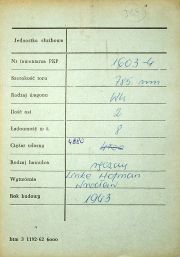 Jednostka służbowa
Nr inwentarza PKP 1603-4
Szerokość toru 785 mm
Rodzaj wagonu Wk
Ilość osi 2
Ładowność w t. 8
Ciężar własny 4880
Rodzaj hamulca ręczny
Wytwórnia Linke Hofman
Wrocław
Rok budowy 1943